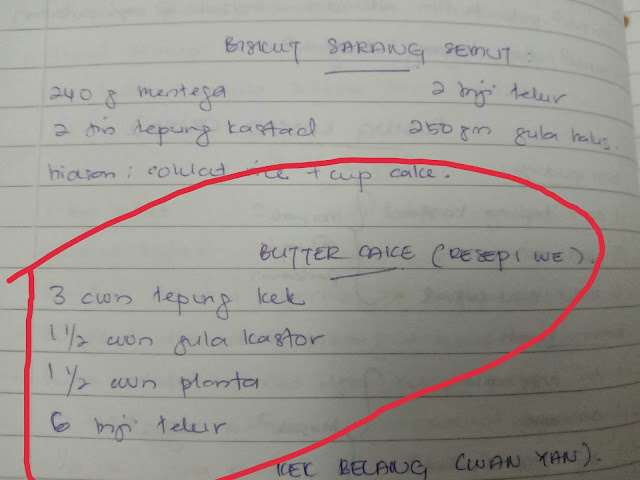 BISKUT SARANG SEMUT :
240 g mentega 2 biji telur
2 tin tepung kastad 250 gm gula halus.
hiasan : coklat rice + cup cake.
BUTTER CAKE (RESEPI WE).
3 cwn tepung kek
1 1/2 cwn gula kastor
1 1/2 cwn planta
6 biji telur
KEK BELANG (WAN YAN).